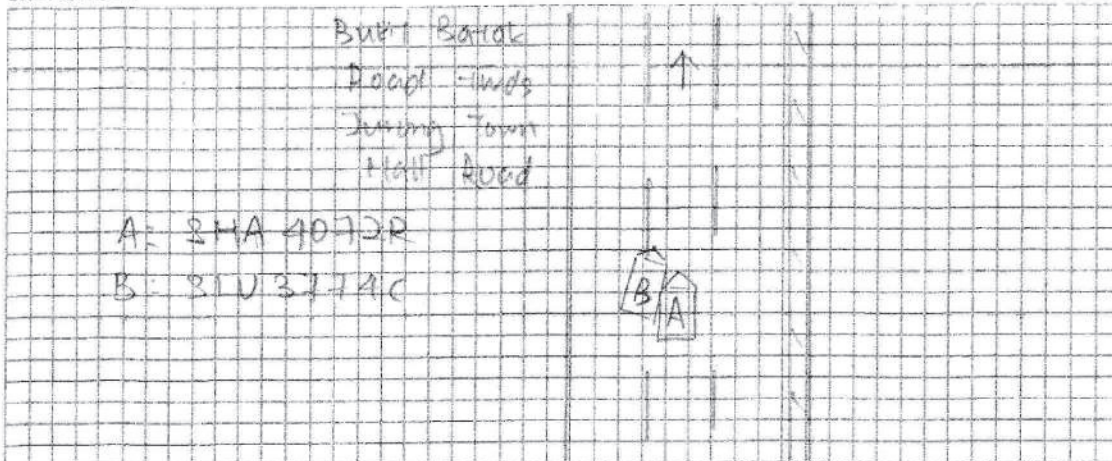 Bukit Batok
Road twds
Jurong Town
Hall Road
A: SHA 4072R
B: SLV 3774C
B
A